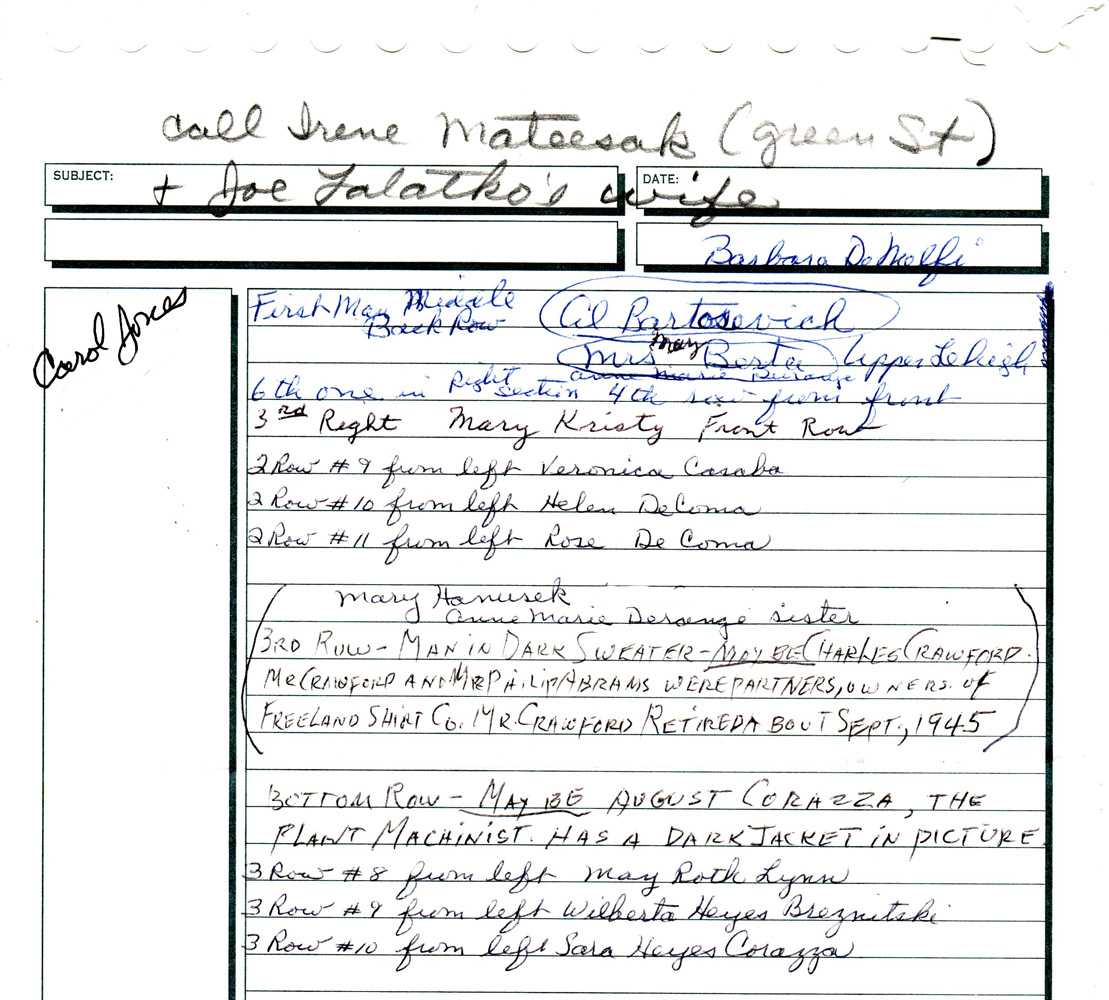 Call Irene Mateesak (green St)
SUBJECT: + Joe Falatko's wife DATE:
Barbara DeMelfi
Carol Jones
First Man Middle Al Bartosevich
Back Row
Mrs. May Berta Upper Lehigh
Anne Marie
6th one in Right section 4th row from front
3rd Right Mary Kristy Front Row
2 Row #9 from left Veronica Casaba
2 Row #10 from left Helen DeComa
2 Row #11 from left Rose DeComa
Mary Hanusek
Anne Marie sister
3RD ROW - MAN IN DARK SWEATER - MAY BE CHARLES CRAWFORD.
MR CRAWFORD AND MR PHILIP ABRAMS WERE PARTNERS, OWNERS OF
FREELAND SHIRT CO. MR. CRAWFORD RETIRED ABOUT SEPT., 1945
BOTTOM ROW - MAY BE AUGUST CORAZZA, THE
PLANT MACHINIST. HAS A DARK JACKET IN PICTURE.
3 Row #8 from left May Roth Lynn
3 Row #9 from left Wilberta Heyes Breznitski
3 Row #10 from left Sara Heyes Corazza